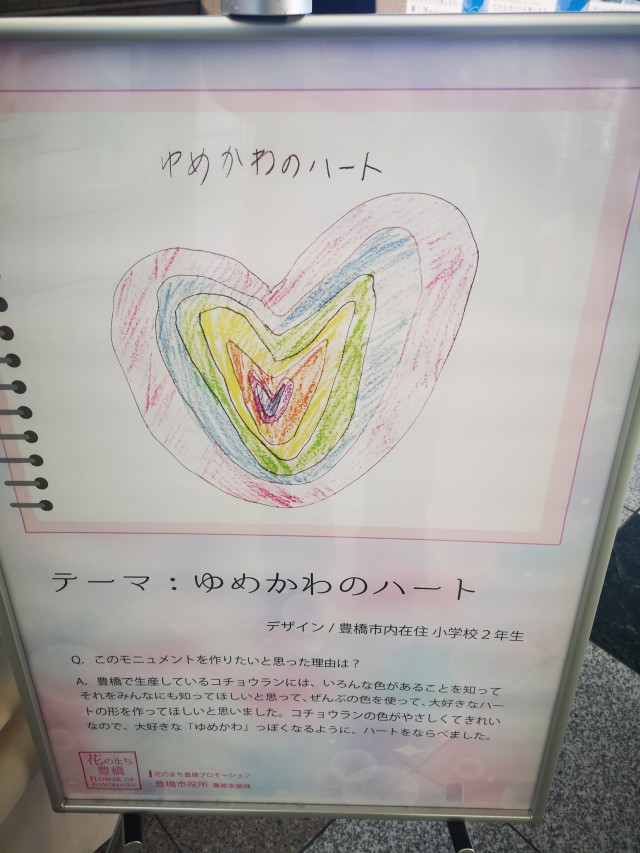 ゆめかわのハート
テーマ：ゆめかわのハート
デザイン / 豊橋市内在住 小学校２年生
Q. このモニュメントを作りたいと思った理由は？
A. 豊橋で生産しているコチョウランには、いろんな色があることを知って
それをみんなにも知ってほしいと思って、ぜんぶの色を使って、大好きなハー
トの形を作ってほしいと思いました。コチョウランの色がやさしくてきれい
なので、大好きな「ゆめかわ」っぽくなるように、ハートをならべました。
花のまち
豊橋
FLOWER OF
TOYOHASHI
花のまち豊橋プロモーション
豊橋市役所 農業支援課